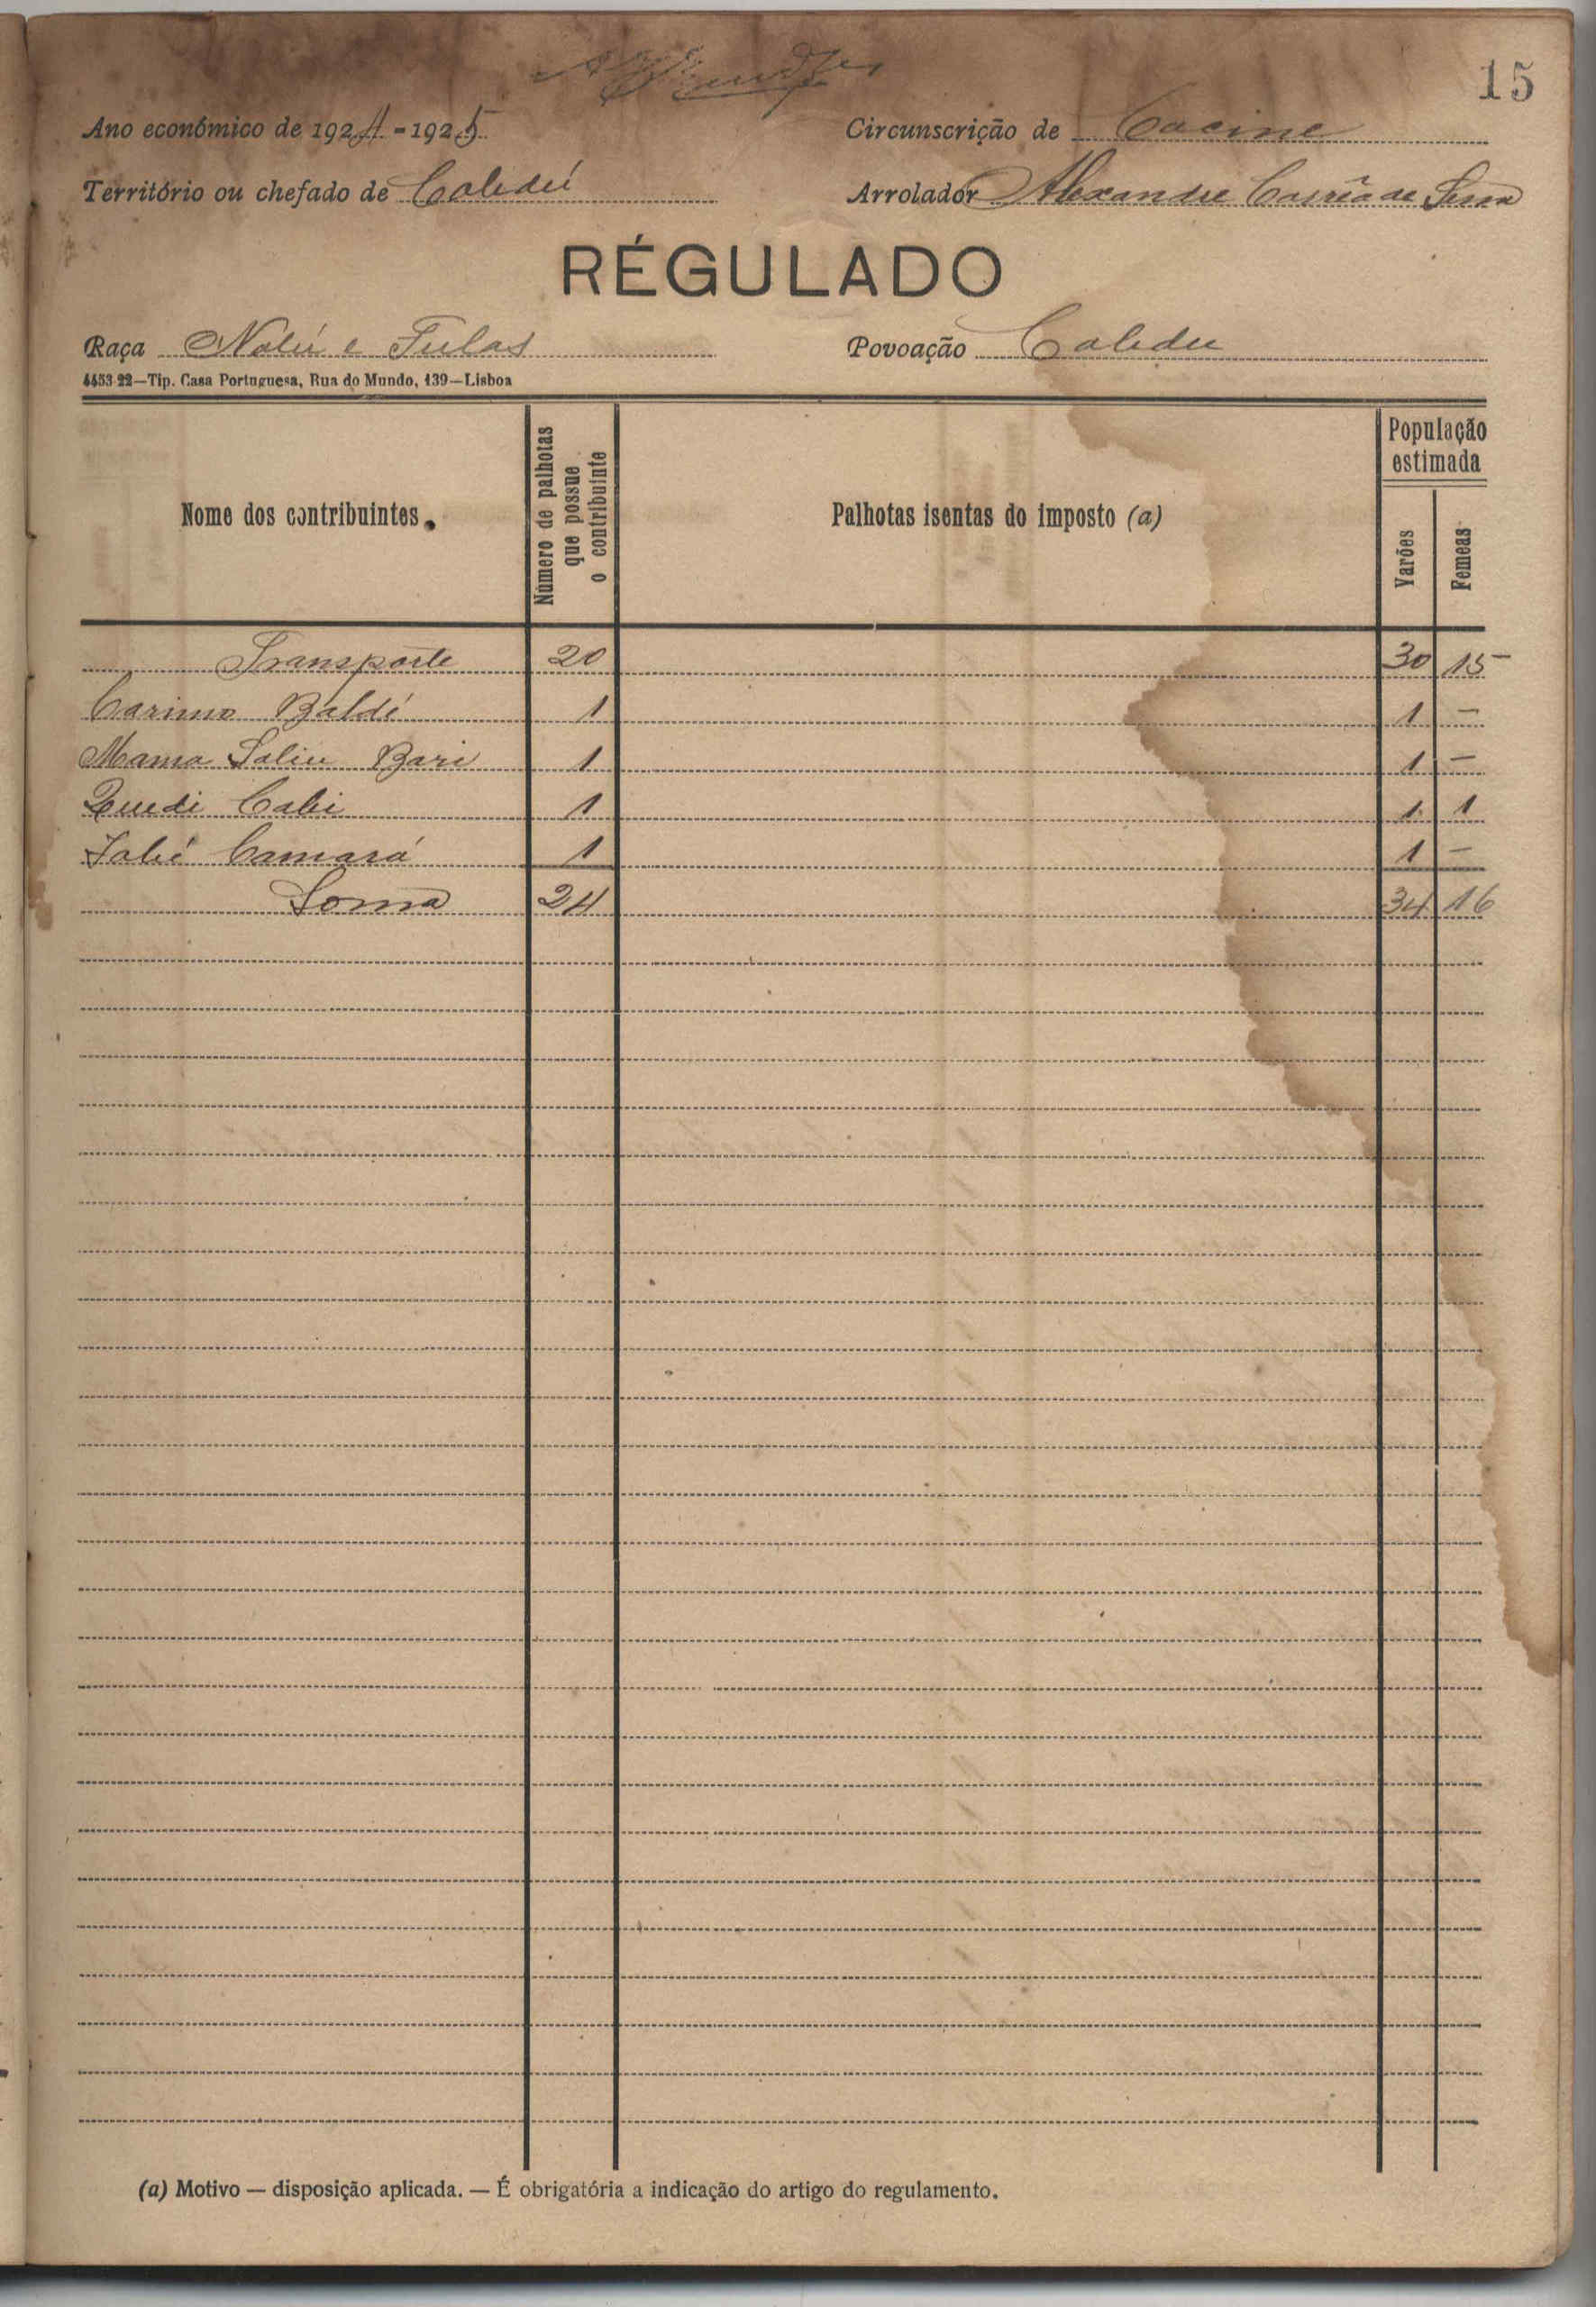 15
Ano económico de 1924-1925
Circunscrição de Cacine
Território ou chefado de Cabedú
Arrolador Alexandre Corrêa de Sena
RÉGULADO
Raça Nalú e Fulas
Povoação Cabedu
4453-22—Tip. Casa Portuguesa, Rua do Mundo, 139—Lisboa
Nome dos contribuintes.
Número de palhotas que possue o contribuinte
Palhotas isentas do imposto (a)
População estimada
Varões
Femeas
Transporte 20 30 15
Carimo Baldé 1 1 -
Mama Saliu Bari 1 1 -
Cabi 1 1 1
Camará 1 1 -
Soma 24 34 16
(a) Motivo — disposição aplicada. — É obrigatória a indicação do artigo do regulamento.